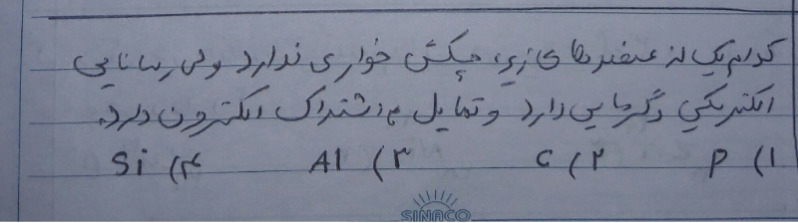 کدام یک از عنصرهای زیر، چکش خواری ندارد ولی رسانایی
الکتریکی و گرمایی دارد و تمایل به اشتراک الکترون دارد.
۱) P ۲) C ۳) Al ۴) Si
SINACO